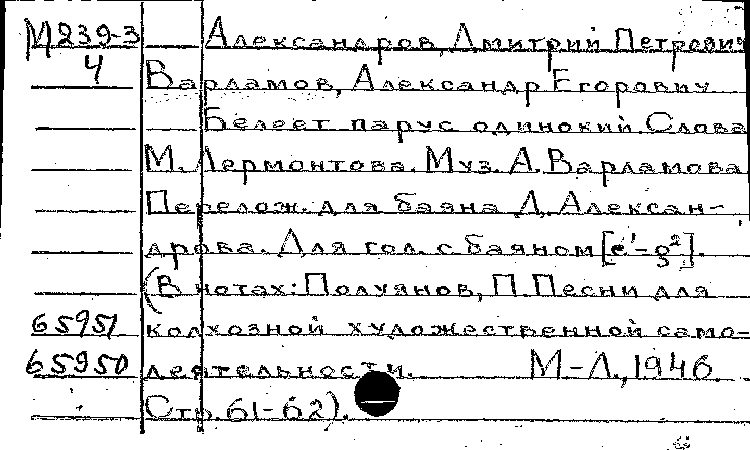 М239-3 Александров, Дмитрий Петрович
4 Варламов, Александр Егорович
Белеет парус одинокий. Слова
М. Лермонтова. Муз. А. Варламова
Перелож. для баяна Д. Алексан-
дрова. Для гол. с баяном [e¹-g²].
(В нотах: Полуянов, П. Песни для
65951 колхозной художественной само-
65950 деятельности. М.-Л., 1946.
Стр. 61-62).